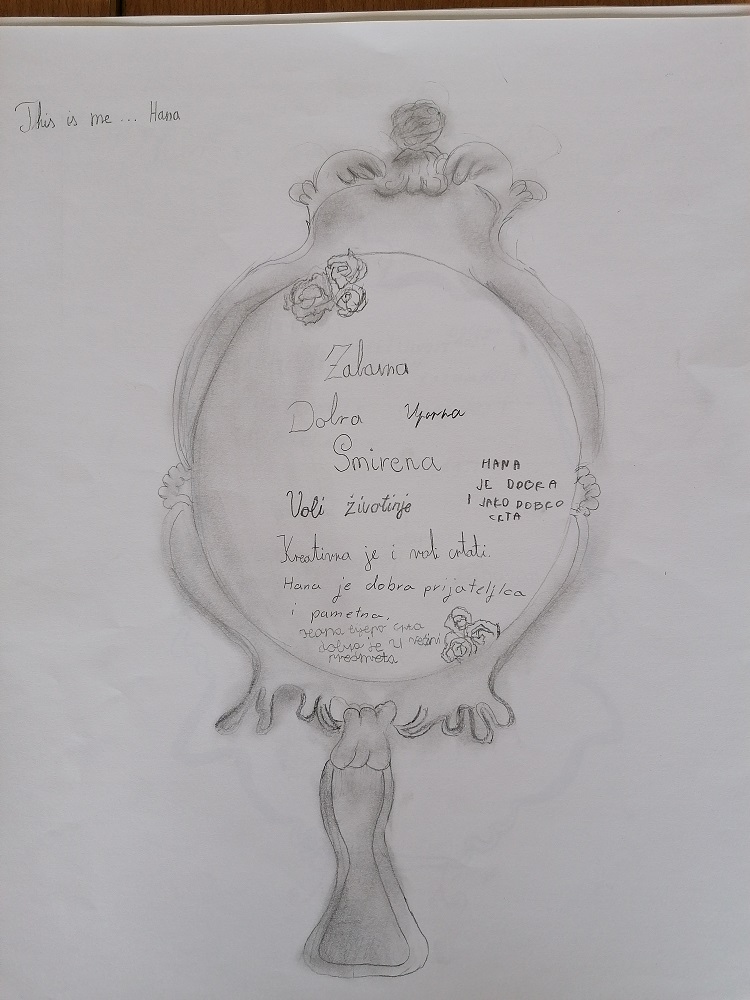 This is me ... Hana
Zabavna
Dobra Uporna
Smirena
HANA
JE DOBRA
I JAKO DOBRO
CRTA
Voli životinje
Kreativna je i voli crtati.
Hana je dobra prijateljica
i pametna.
Hana lijepo crta
dobra je u većini
predmeta